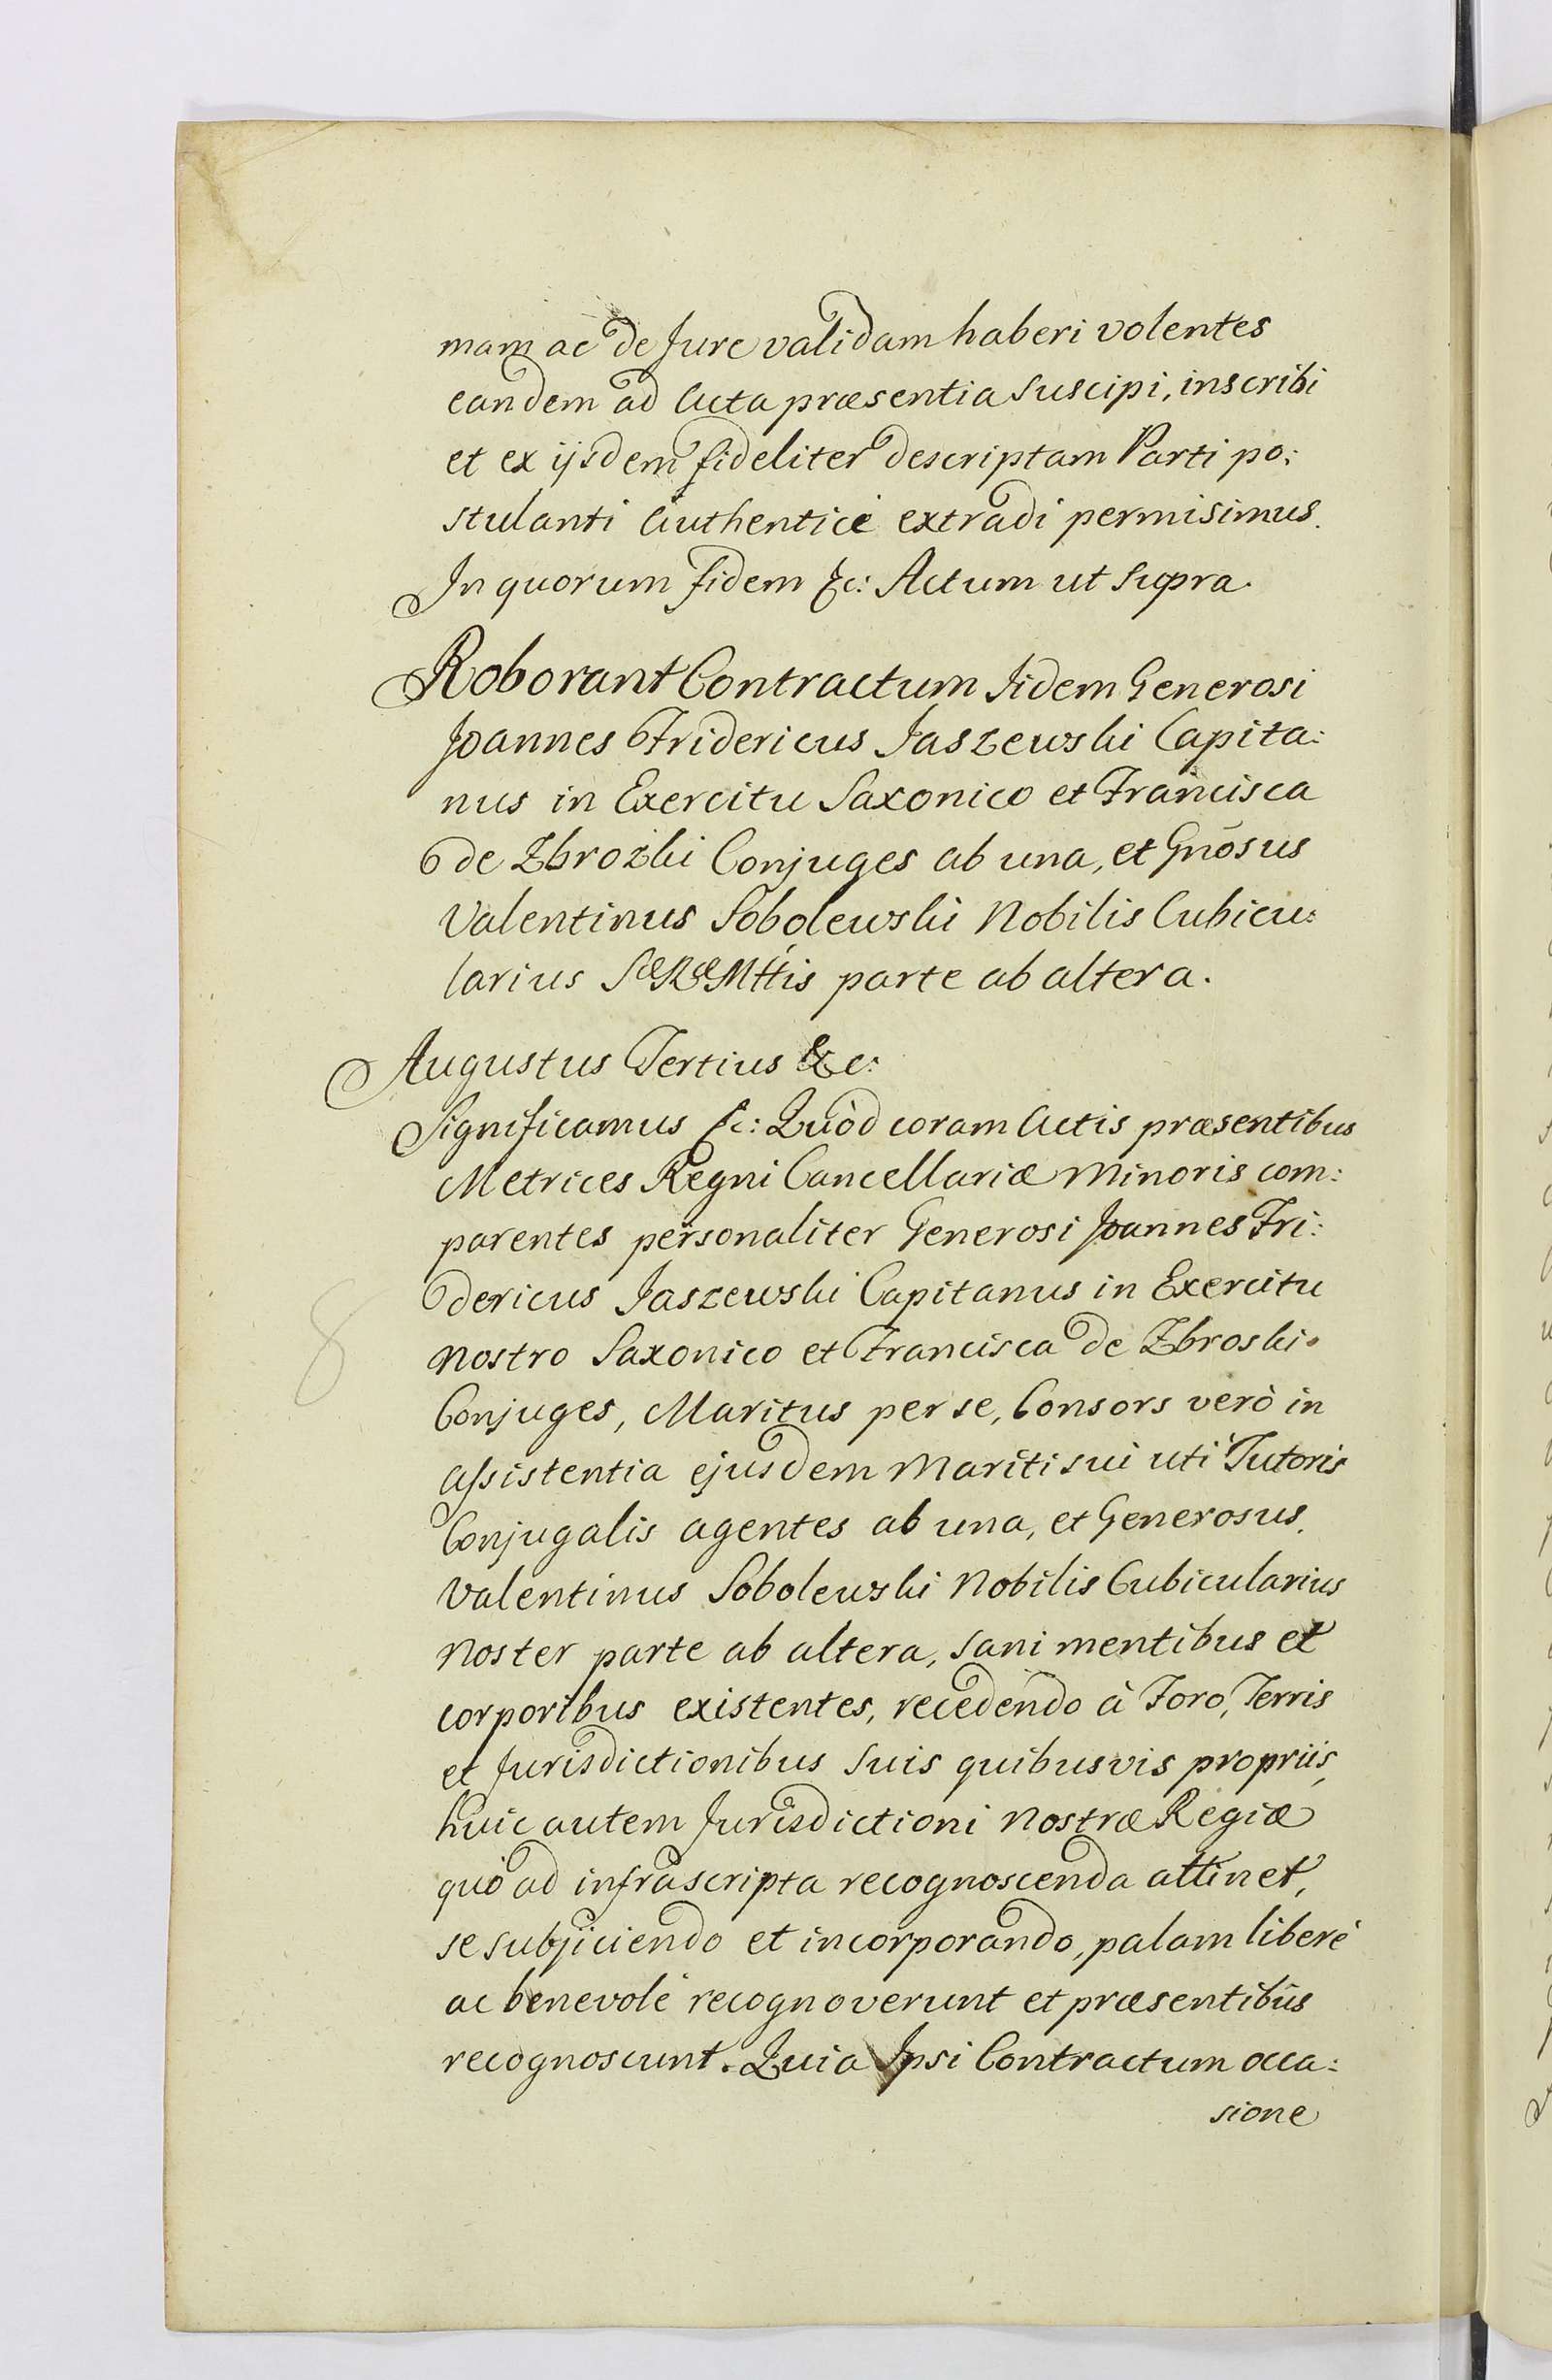 mam ac de Jure validam haberi volentes
eandem ad Acta præsentia suscipi, inscribi
et ex ijsdem fideliter descriptam Parti po:
stulanti Authenticè extradi permisimus.
In quorum fidem &c: Actum ut supra.
Roborant Contractum Iidem Generosi
Joannes Fridericus Jaszewski Capita:
nus in Exercitu Saxonico et Francisca
de Zbrozki Conjuges ab una, et Gnōsus
Valentinus Sobolewski Nobilis Cubicu:
larius SæRæMttis parte ab altera.
Augustus Tertius &c:
Significamus &c: Quòd coram Actis præsentibus
Metrices Regni Cancellariæ Minoris com:
parentes personaliter Generosi Joannes Fri:
dericus Jaszewski Capitanus in Exercitu
Nostro Saxonico et Francisca de Zbroski
8
Conjuges, Maritus per se, Consors verò in
assistentia ejusdem Mariti sui uti Tutoris
Conjugalis agentes ab una, et Generosus
Valentinus Sobolewski Nobilis Cubicularius
Noster parte ab altera, sani mentibus et
corporibus existentes, recedendo à Foro, Terris
et Jurisdictionibus suis quibusvis propriis,
huic autem Jurisdictioni Nostræ Regiæ
quò ad infrascripta recognoscenda attinet,
se subjiciendo et incorporando, palam liberè
ac benevolè recognoverunt et præsentibus
recognoscunt. Quia Ipsi Contractum occa:
sione